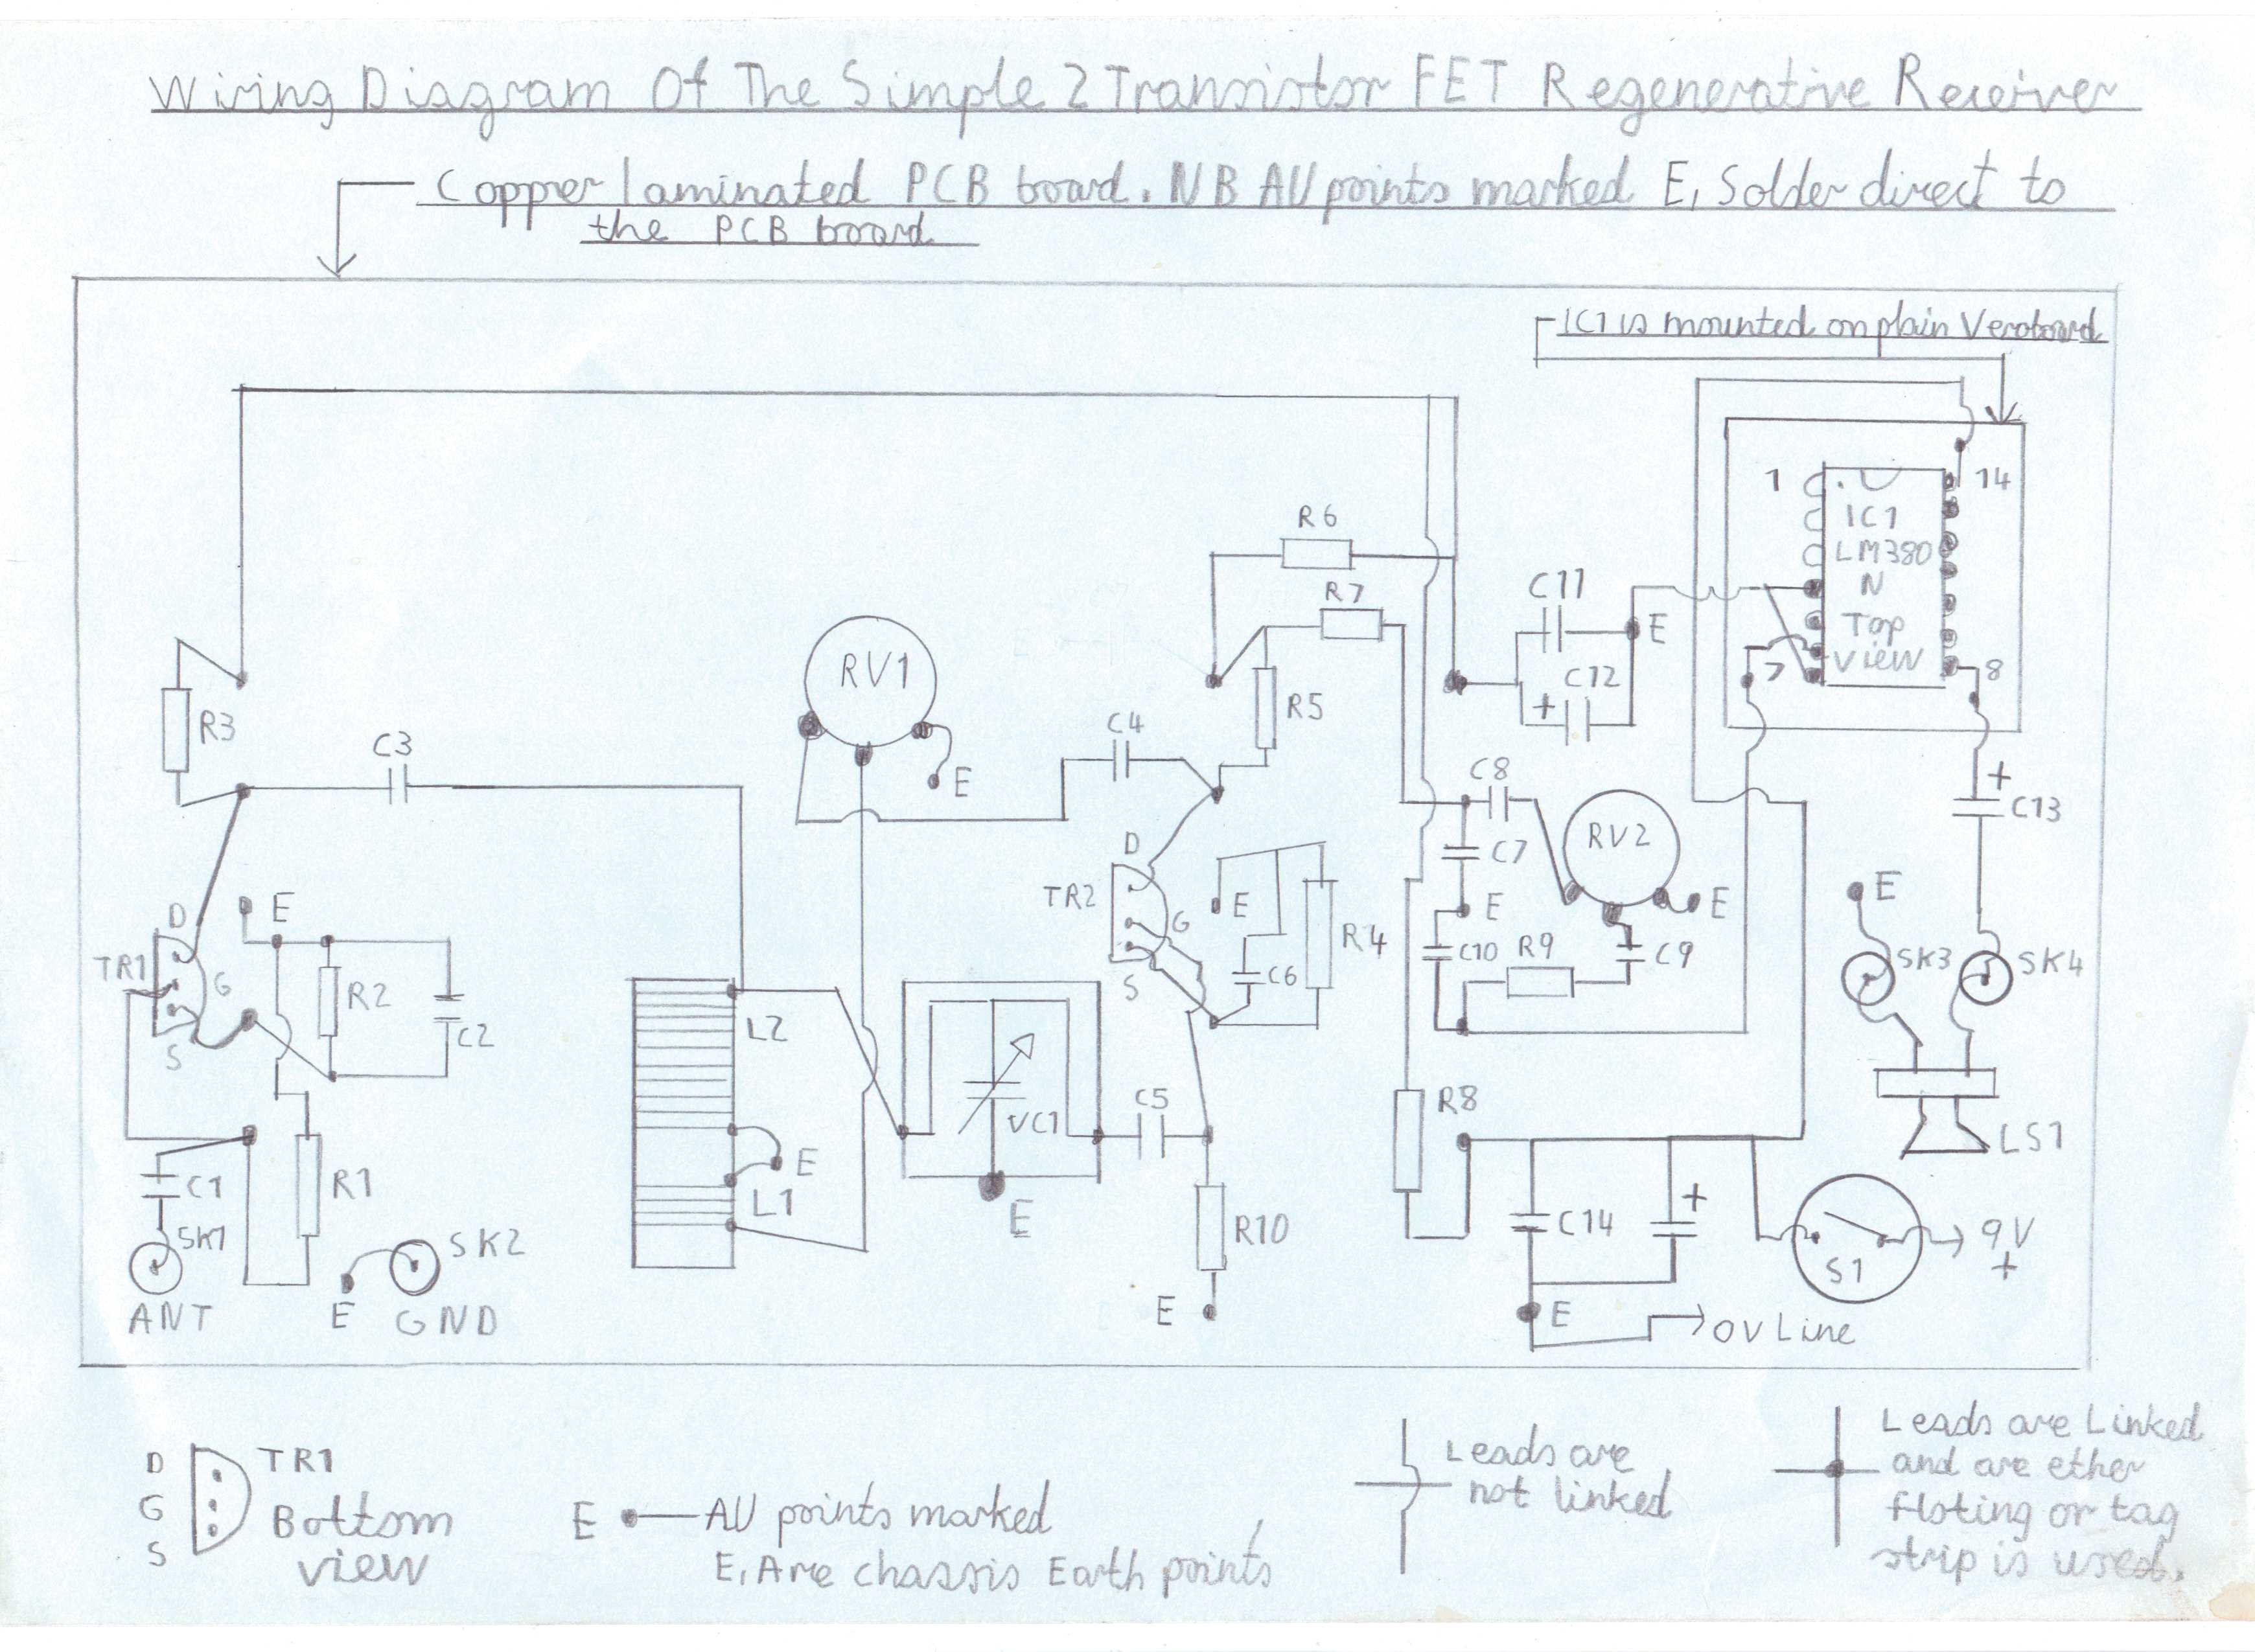 Wiring Diagram Of The Simple 2 Transistor FET Regenerative Receiver
Copper laminated PCB board. NB All points marked E, Solder direct to
the PCB board
IC1 is mounted on plain Veroboard
1 14
IC1
LM380
N
Top
View
7 8
R6
R7
C11
E
C12
+
R5
RV1
E
C4
R3
C3
C8
RV2
C7
E
E
C10
R9
C9
+
C13
E
SK3
SK4
LS1
D
TR2
G
S
E
R4
C6
D
E
TR1
G
S
R2
C2
L2
E
L1
VC1
E
C5
R10
E
R8
C14
+
E
0V Line
S1
9V
+
C1
SK1
ANT
R1
SK2
E
GND
D
G
S
TR1
Bottom
view
E
All points marked
E, Are chassis Earth points
Leads are
not linked
Leads are Linked
and are ether
floting or tag
strip is used.